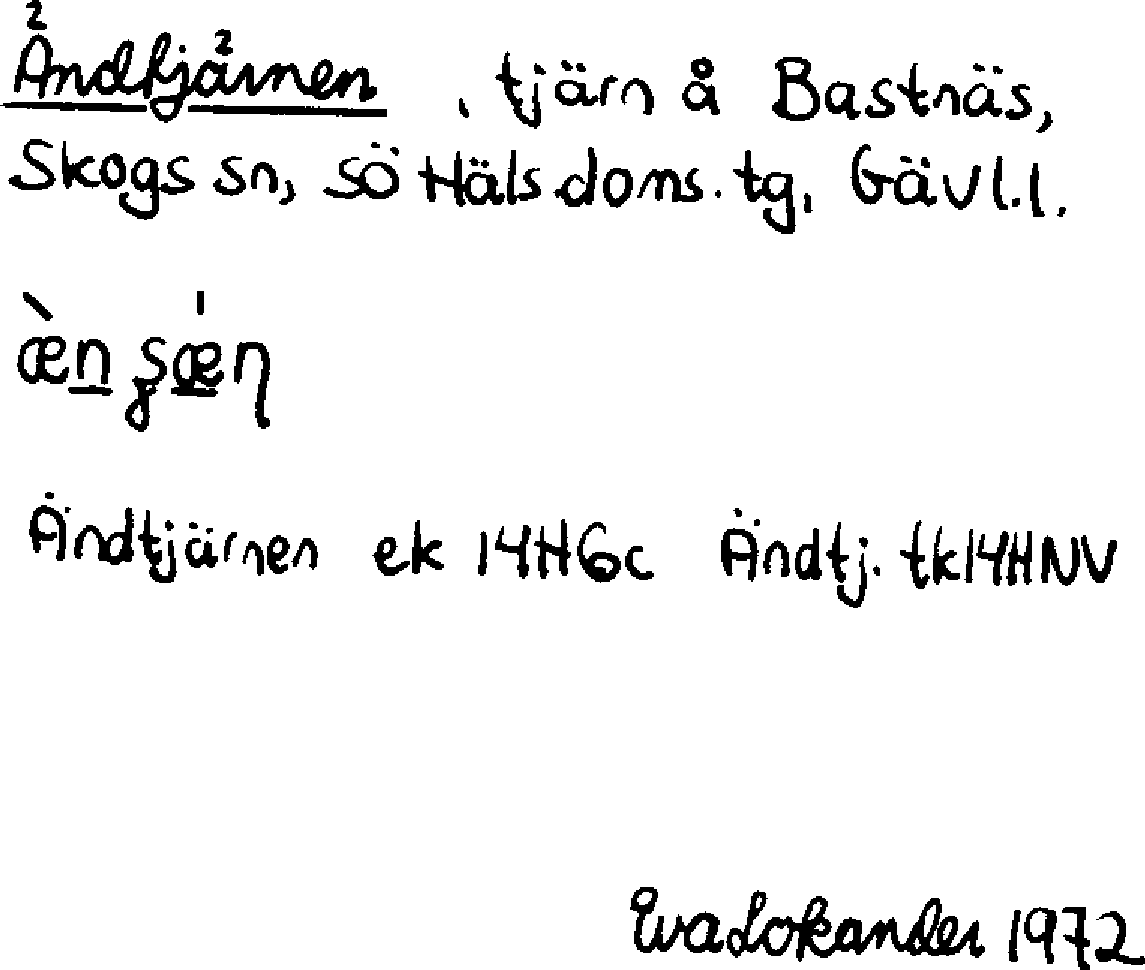 Ändtjärnen , tjärn å Bastnäs,
Skogs sn, sö Häls doms. tg, Gävl.l.
Ändtjärnen ek 14H6c Ändtj. tk14HNV
Eva Lokander 1972